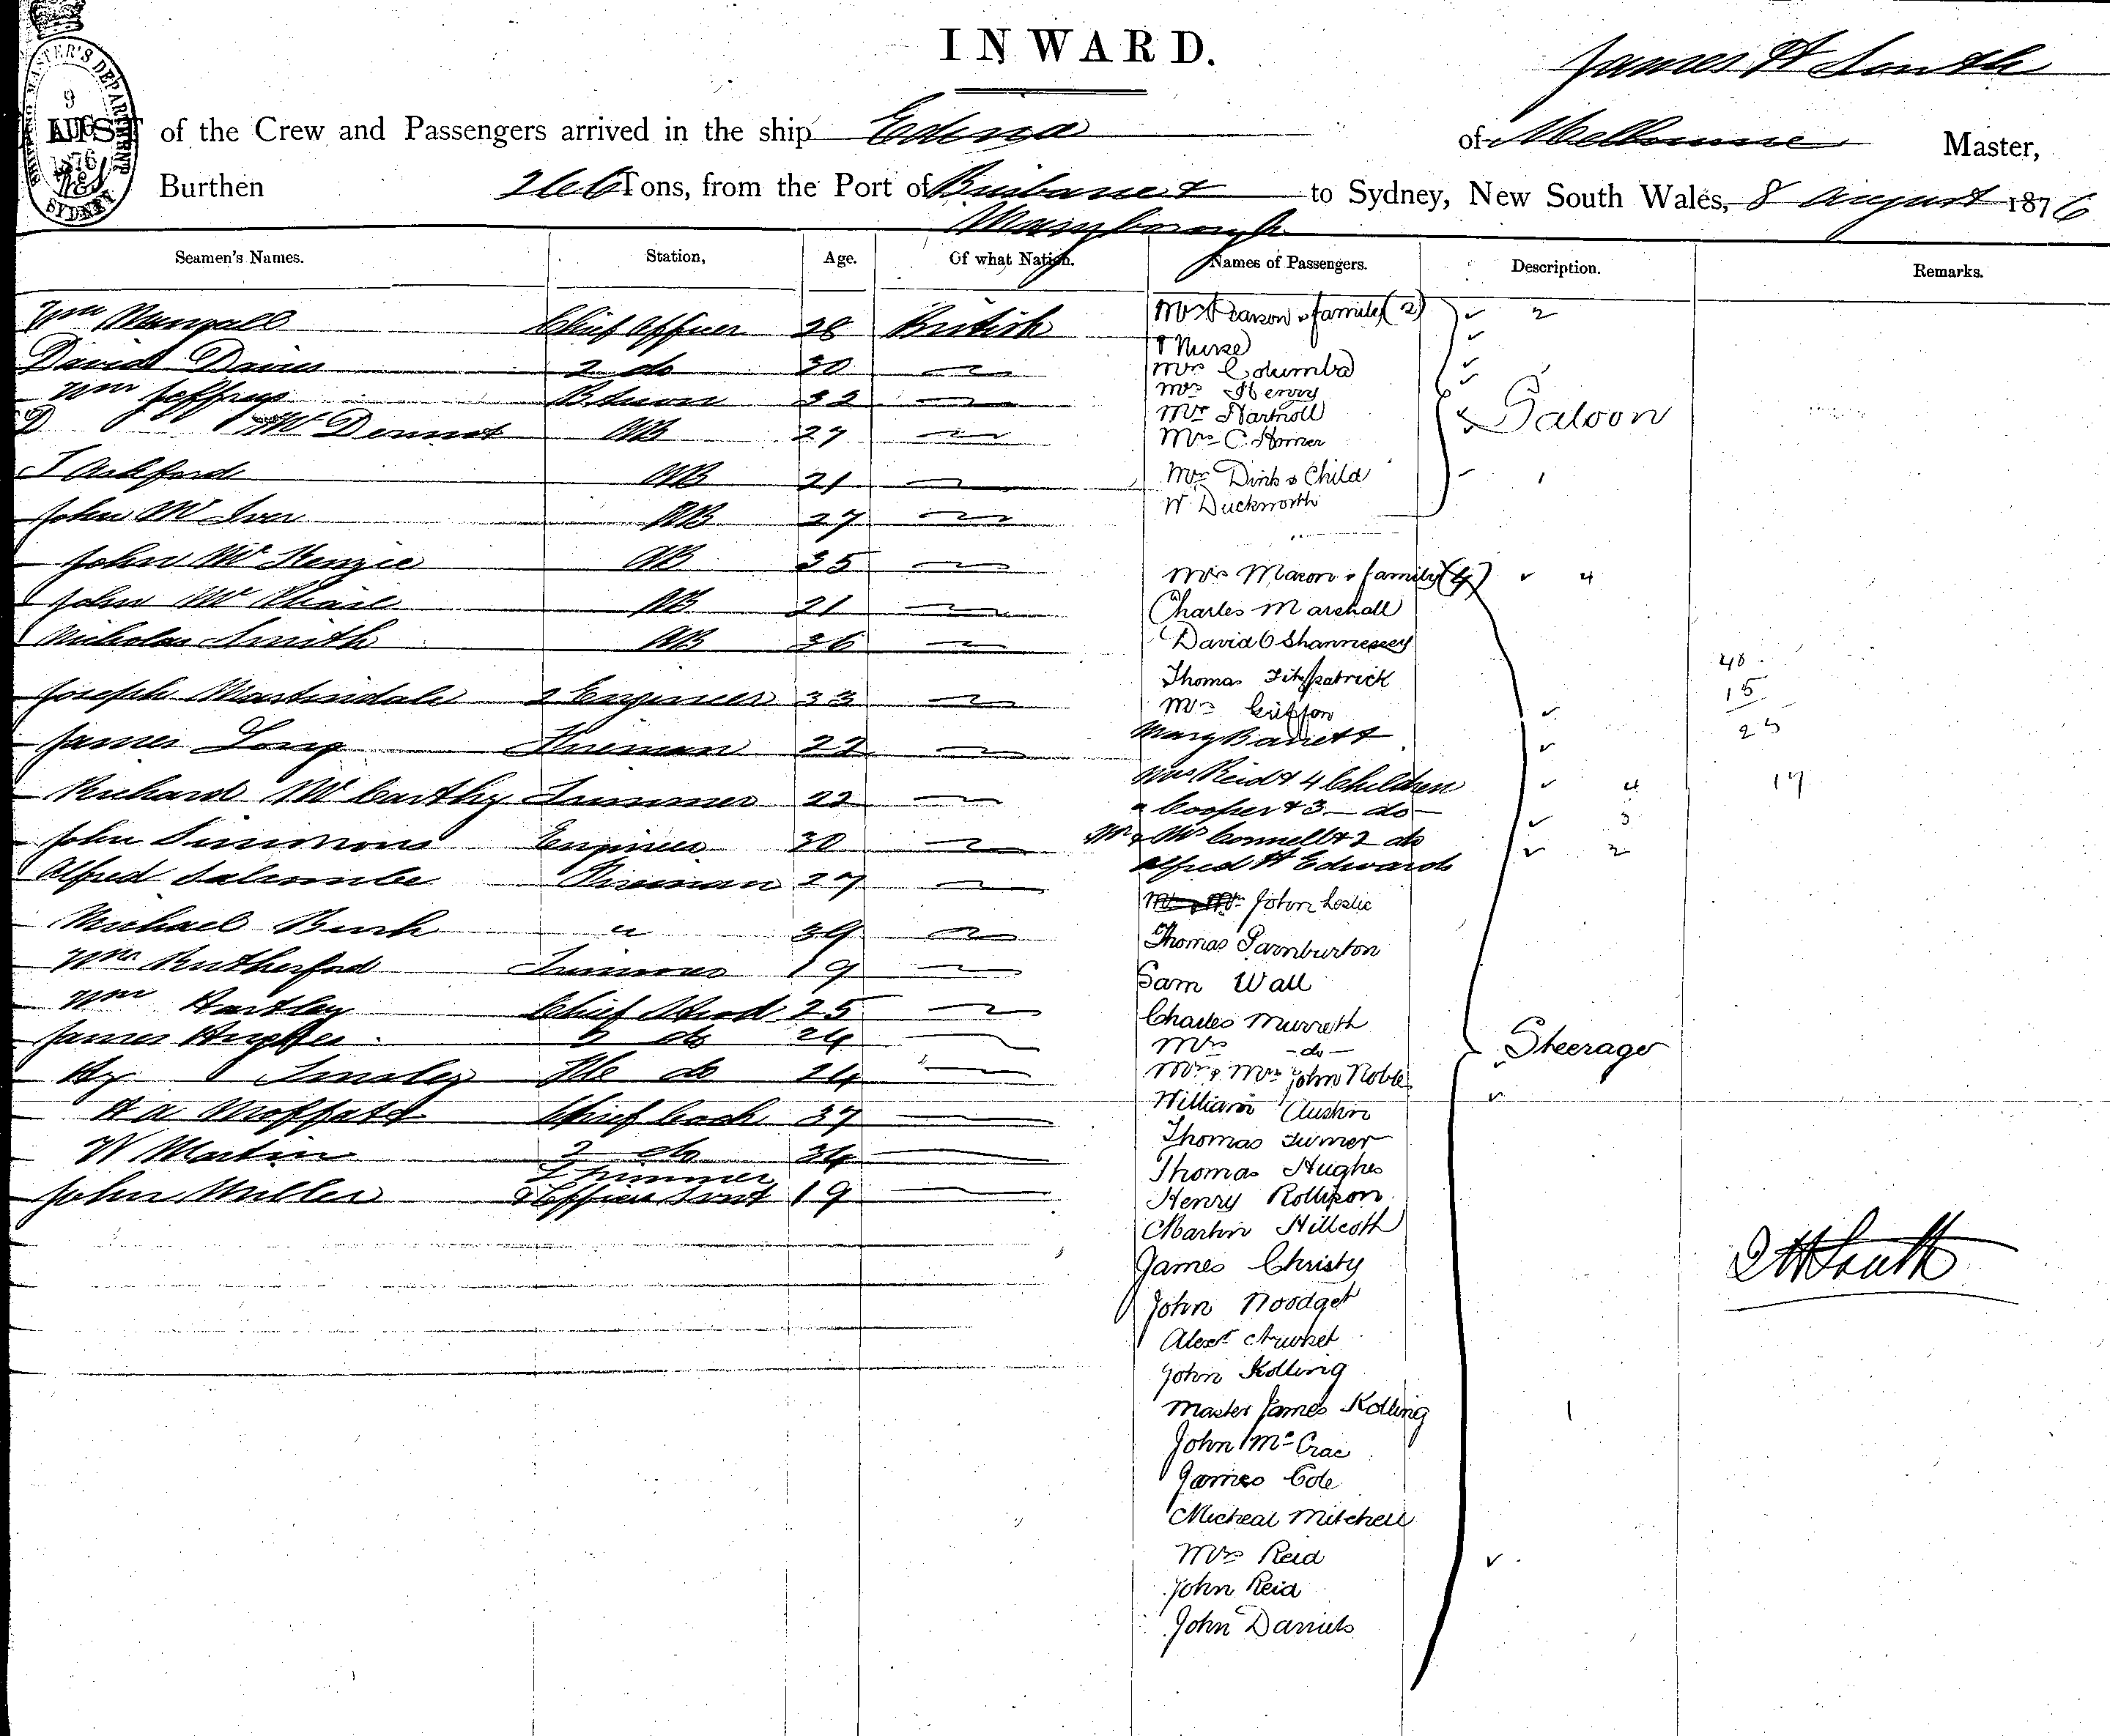 INWARD.
James H South
of the Crew and Passengers arrived in the ship Edina of Melbourne Master,
Burthen 266 Tons, from the Port of Brisbane & to Sydney, New South Wales, 8 August 1876
Maryborough
SHIPPING MASTER'S DEPARTMENT
9
AUGST
1876
SYDNEY
Seamen's Names. Station, Age. Of what Nation. Names of Passengers. Description. Remarks.
Wm Chief Officer 28 British
David Davies 2 do 30
Wm Jeffreys 32
D McDermot AB 27
J AB 21
John McIver AB 27
John McKenzie AB 35
John McPhail AB 21
Nicholas Smith AB 36
Joseph Martindale 2 Engineer 33
James Long Fireman 22
Richard McCarthy Trimmer 22
John Simmons Engineer 30
Alfred Fireman 27
Michael " 39
Wm Rutherford Trimmer 19
Wm Hartley Chief Stwd 25
James 2 do 24
Hy Tinsley do 24
H A Moffatt Chief Cook 37
W Martin 2 do 34
Trimmer
John Miller & Officers Servt 19
Mrs Pearson & family (2) 2
& Nurse
Mr Columba
Mrs Henry
Mr Hartnoll
Mrs C. Horner
Saloon
Mrs Dink & Child 1
W Duckworth
Mrs Mason & family (4) 4
Charles Marshall
David O Shannessey
Thomas Fitzpatrick
Mrs
Mary Barrett
Mrs Reid & 4 Children 4
" Cooper & 3 do 3
Mr & Mrs Connell & 2 do 2
Alfred H Edwards
John Leslie
Thomas Parnburton
Sam Wall
Charles Murreth
Mrs do
Steerage
Mr & Mrs John Noble
William Austin
Thomas Turner
Thomas Hughes
Henry Rollison
Martin Hillcoth
James Christy
John Noodget
Alexr
John Kolling
Master James Kolling 1
John McCrae
James Cole
Micheal Mitchell
Mrs Reid
John Reid
John Daniels
40
15
25
17
J H South